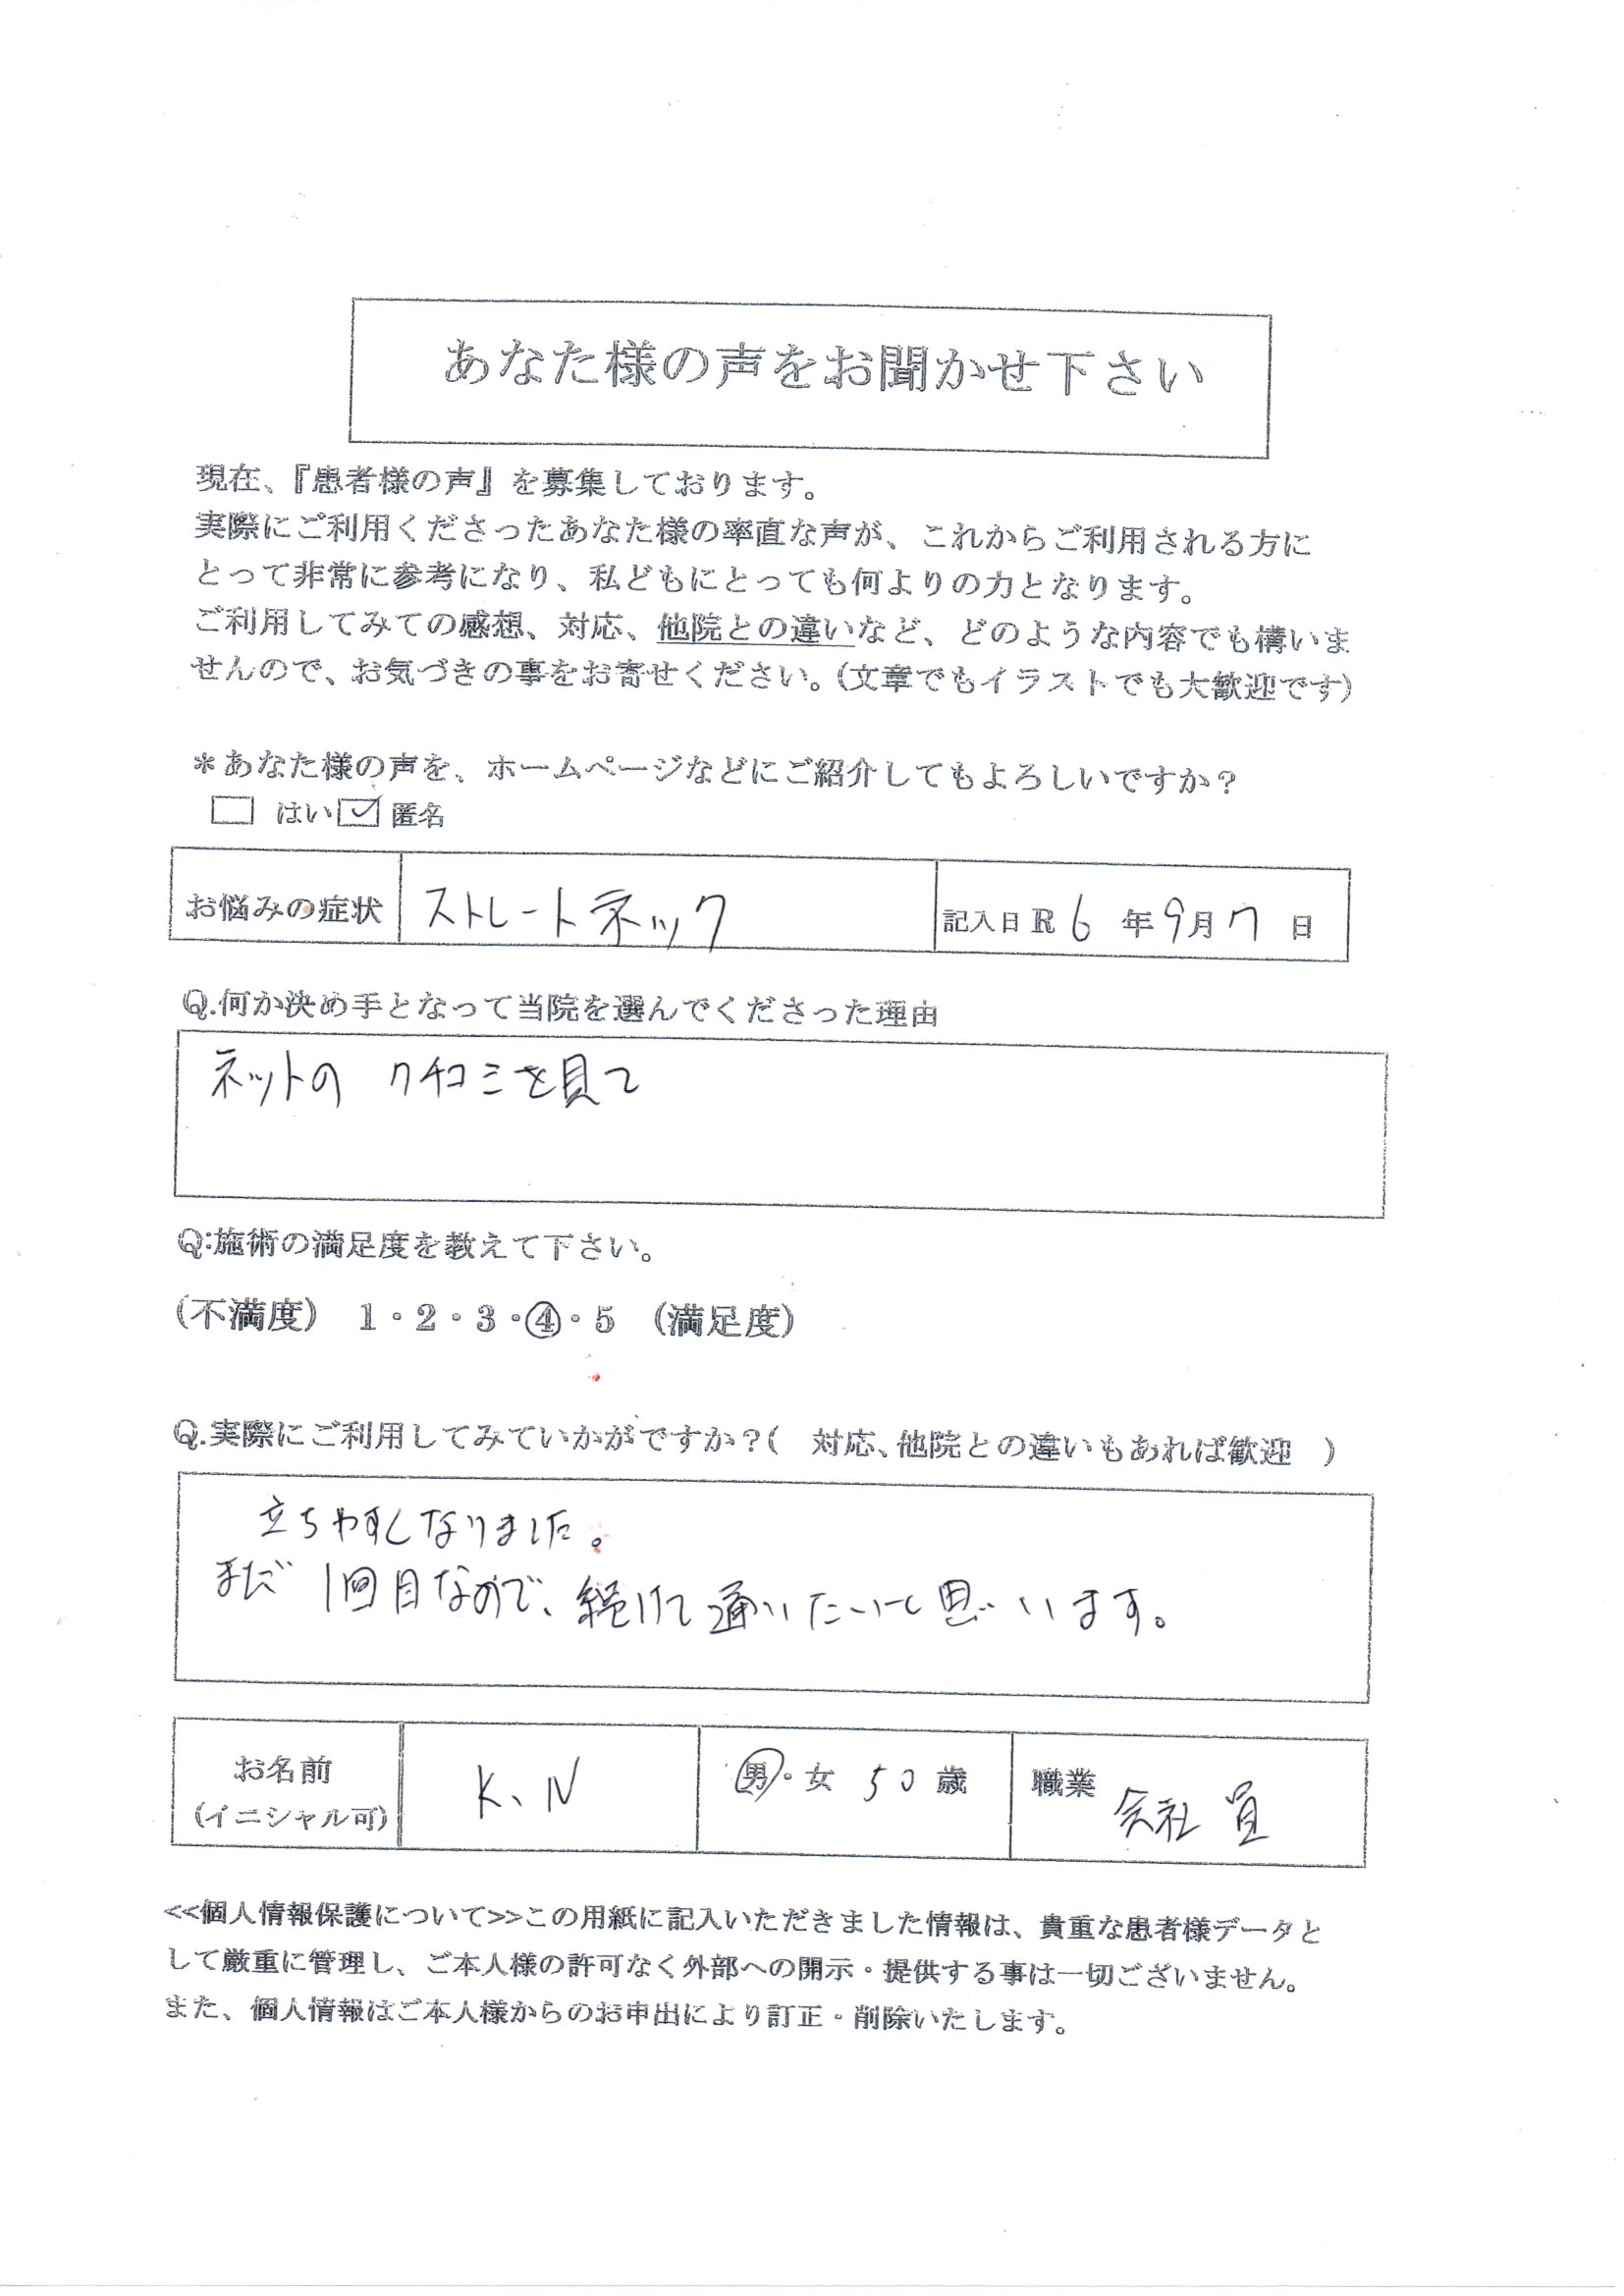 あなた様の声をお聞かせ下さい
現在、『患者様の声』を募集しております。
実際にご利用くださったあなた様の率直な声が、これからご利用される方に
とって非常に参考になり、私どもにとっても何よりの力となります。
ご利用してみての感想、対応、他院との違いなど、どのような内容でも構いま
せんので、お気づきの事をお寄せください。(文章でもイラストでも大歓迎です)
＊あなた様の声を、ホームページなどにご紹介してもよろしいですか？
□ はい ☑ 匿名
お悩みの症状 ストレートネック 記入日 R 6 年 9 月 7 日
Q.何か決め手となって当院を選んでくださった理由
ネットの クチコミを見て
Q:施術の満足度を教えて下さい。
(不満度) 1・2・3・④・5 (満足度)
Q.実際にご利用してみていかがですか？( 対応、他院との違いもあれば歓迎 )
立ちやすくなりました。
まだ 1回目なので、続けて通いたいと思います。
お名前 K、N 男・女 50 歳 職業 会社員
(イニシャル可)
<<個人情報保護について>>この用紙に記入いただきました情報は、貴重な患者様データと
して厳重に管理し、ご本人様の許可なく外部への開示・提供する事は一切ございません。
また、個人情報はご本人様からのお申出により訂正・削除いたします。